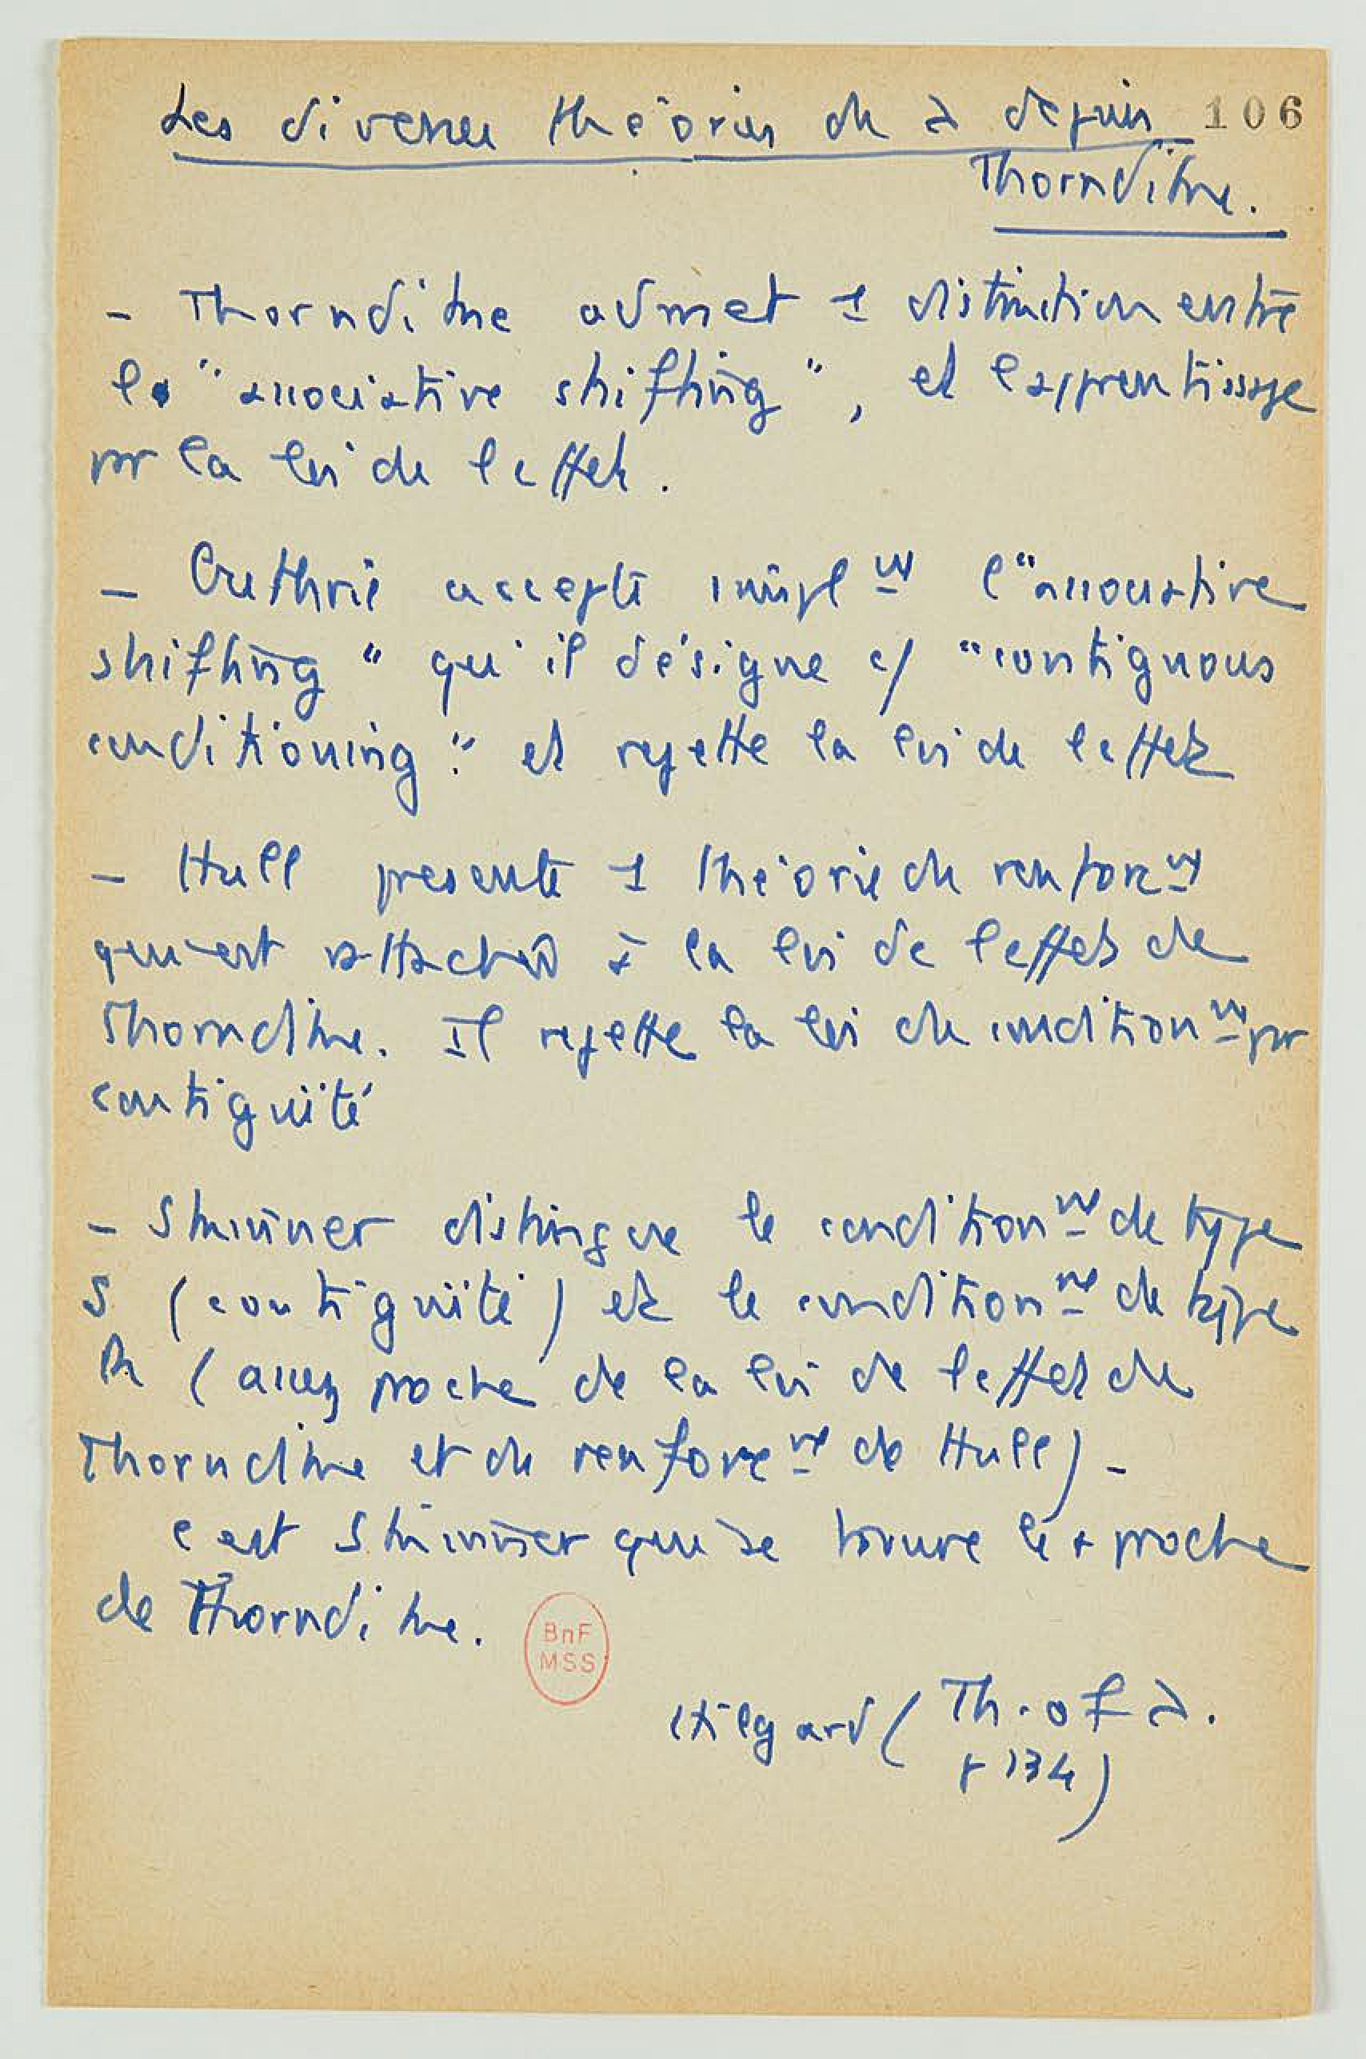 Les diverses théories de λ depuis 106
Thorndike.
- Thorndike admet 1 distinction entre
le "associative shifting", et l'apprentissage
par la loi de l'effet.
- Guthrie accepte simplᵗ l'"associative
shifting" qu'il désigne c/ "contiguous
conditioning" et rejette la loi de l'effet
- Hull présente 1 théorie du renforcᵗ
qui est rattachée à la loi de l'effet de
Thorndike. Il rejette la loi du conditionᵗ par
contiguïté
- Skinner distingue le conditionᵗ de type
S (contiguïté) et le conditionᵗ de type
R (assez proche de la loi de l'effet de
Thorndike et du renforcᵗ de Hull) -
c'est Skinner qui se trouve le + proche
de Thorndike.
BnF
MSS
Hilgard (Th. of λ.
p 134)